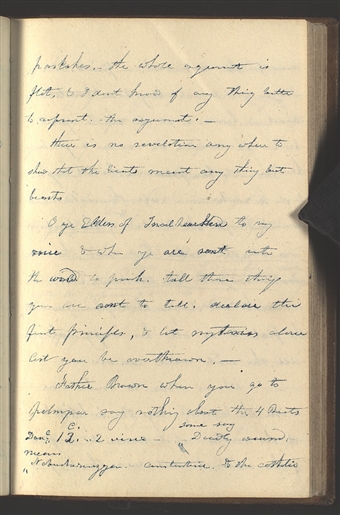 parishes. the whole argument is
flat, & I dont know of any thing better
to refute the argument. —
there is no revelation any where to
shew that the beasts meant any thing but
beasts
O ye Elders of Israel hearken to my
voice & when ye are sent into
the world to preach. tell those things
you are sent to tell. declare the
first principles, & let mysteries alone
lest you be overthrown. —
Father Brown when you go to
Palmyra say nothing about the 4 Beasts
some say
Dan. 2 verse — Deadly wound.
means
Nebuchadnezzar. constantine. & the catholic